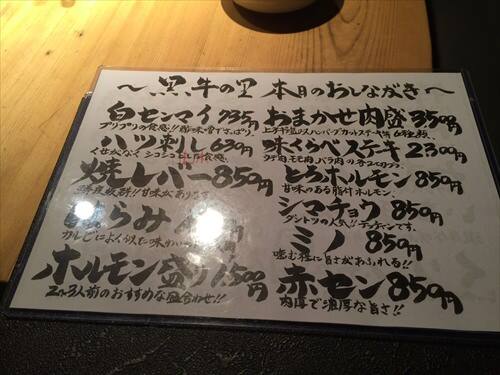 ～黒牛の里 本日のおしながき～
白センマイ 735円
プリプリの食感!!酢味噌でさっぱり。
ハツ刺し 630円
くせがなくシコシコとした食感。
焼レバー 850円
鮮度抜群!!甘味があります。
はらみ 円
カルビによく似て味わい
ホルモン盛り 1,500円
2〜3人前のおすすめな盛合わせ!!
おまかせ肉盛 3500円
味くらべステーキ 2300円
モモ肉 バラ肉の
とろホルモン 850円
甘味のある脂付ホルモン
シマチョウ 850円
ダントツの人気!!テッチャンです。
ミノ 850円
噛む程に旨さがあふれる!!
赤セン 850円
肉厚で濃厚な旨さ!!